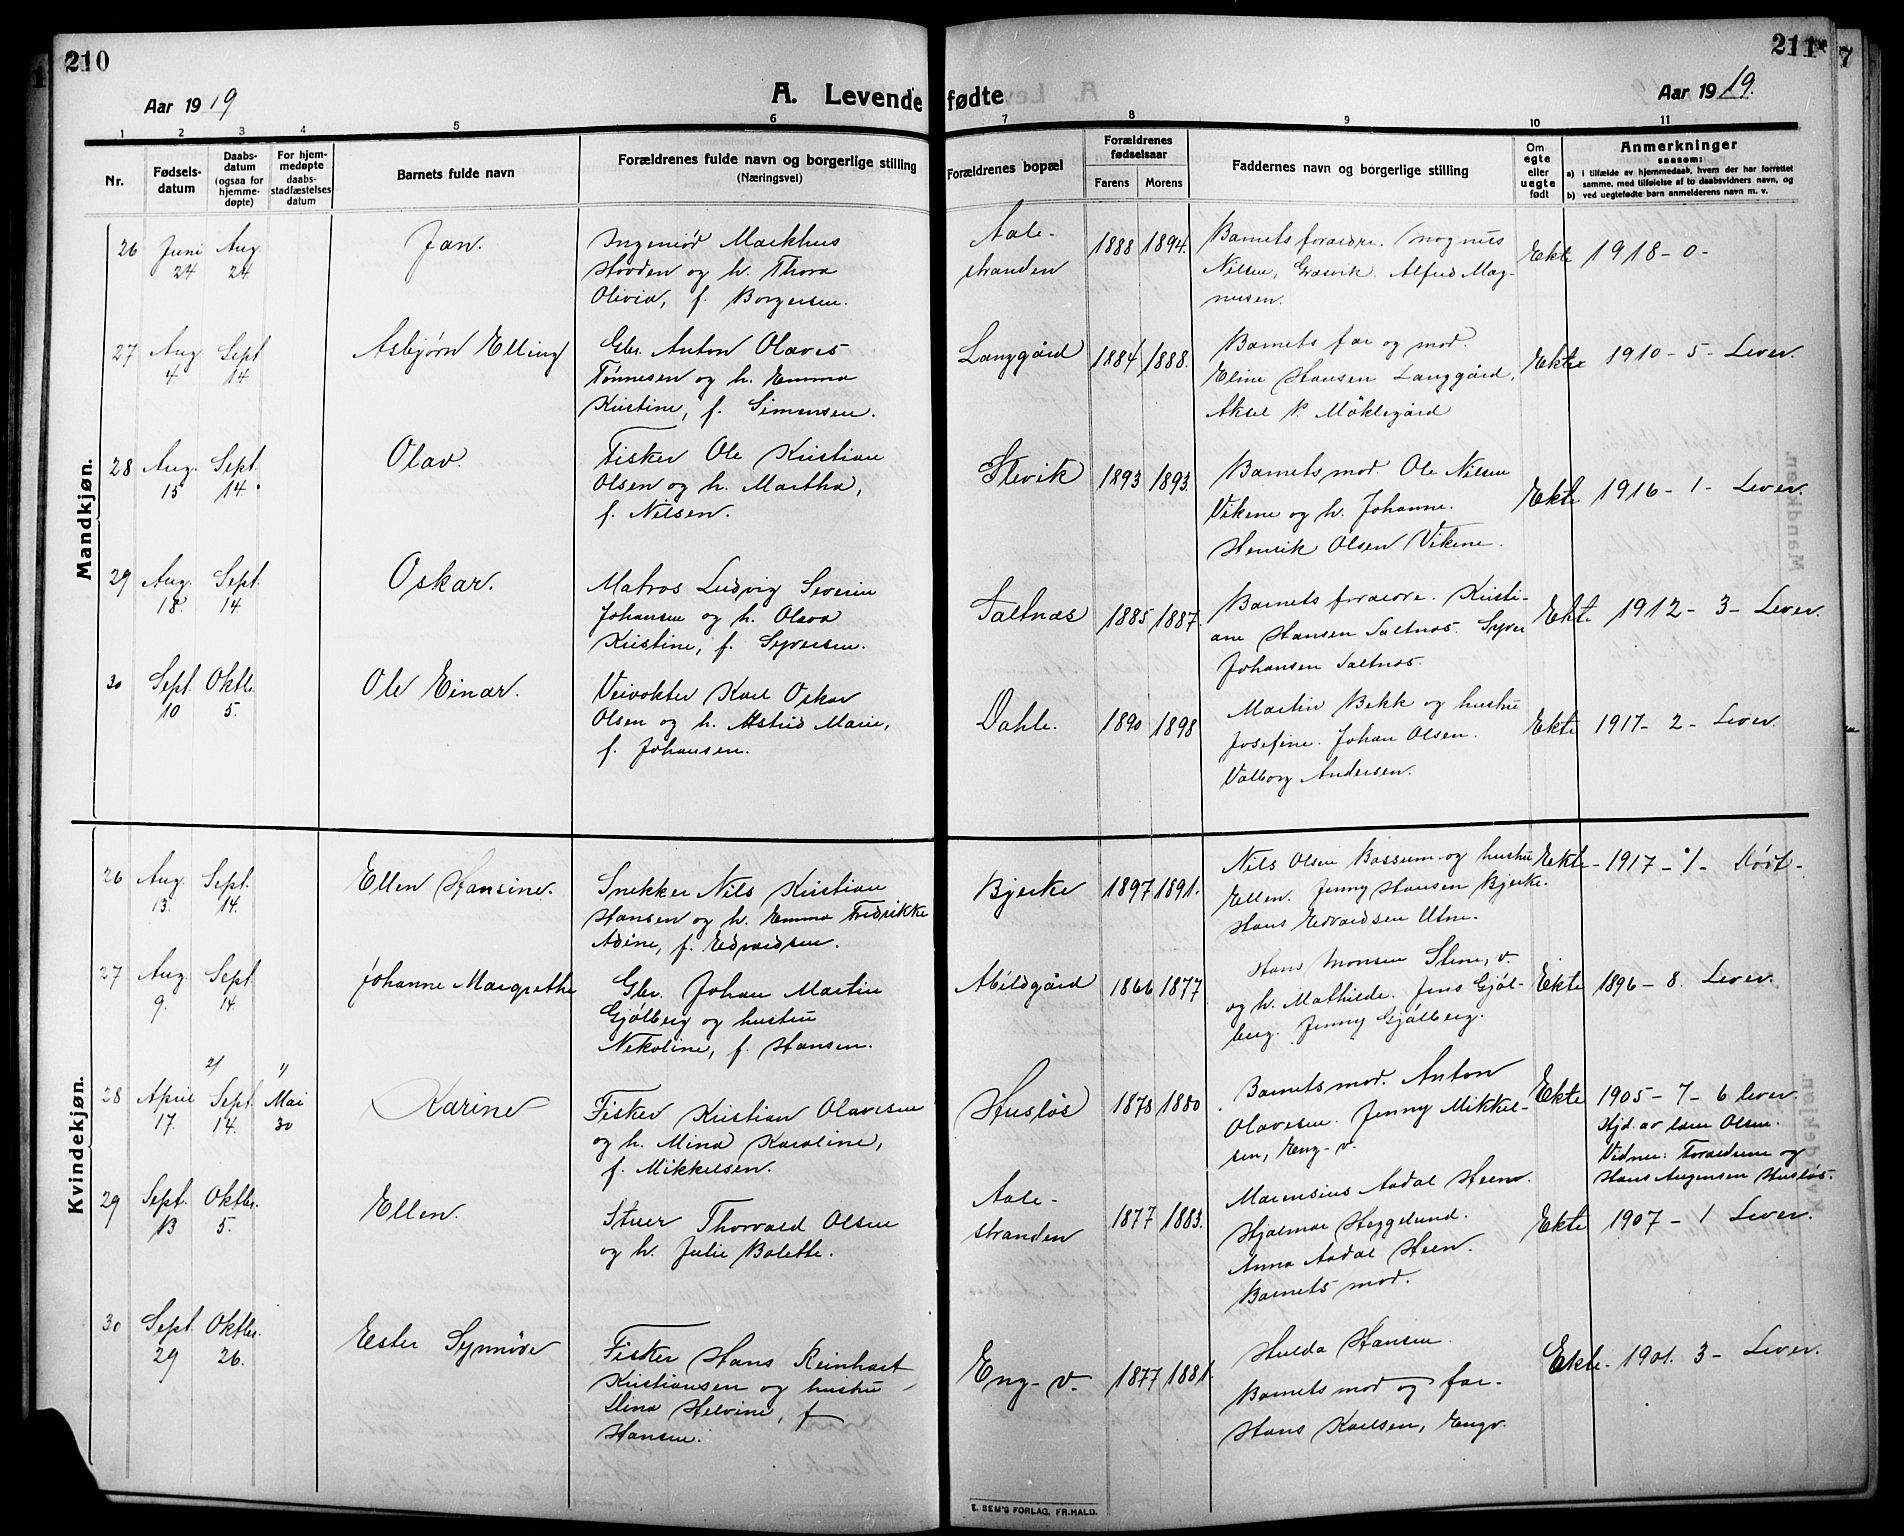 210
Aar 1919
A. Levende fødte
211
Aar 1919.
1 2 3 4 5 6 7 8 9 10 11
Nr.
Fødsels-
datum
Daabs-
datum
(ogsaa for
hjemme-
døpte)
For hjem-
medøpte
daabs-
stadfæstelses
datum
Barnets fulde navn
Forældrenes fulde navn og borgerlige stilling
(Næringsvei)
Forældrenes bopæl
Forældrenes
fødselsaar
Farens Morens
Faddernes navn og borgerlige stilling
Om
egte
eller
uegte
født
Anmerkninger
saasom:
a) i tilfælde av hjemmedaab, hvem der har forrettet
samme, med tilføielse af to daabsvidners navn, og
b) ved uegtefødte barn anmelderens navn m. v.
Mandkjøn.
26
Juni
24
Aug.
24
Jan.
Ingeniør Markhus
Hovden og h. Thora
Olivia, f. Borgersen.
Aale-
stranden
1888 1894.
Barnets foraedre. Magnus
Nilsen, Græsvik. Alfred Mag-
nusen.
Ekte 1918 - 0 -
27
Aug
4
Sept
14
Asbjørn Elling
Gbr. Anton Olaves
Tønnesen og h. Emma
Kristine, f. Simensen.
Langgård
1884 1888.
Barnets far og mod.
Eline Hansen Langgård,
Aksel P. Møklegård
Ekte 1910 - 5 - Lever.
28
Aug.
15
Sept.
14.
Olav.
Fisker Ole Kristian
Olsen og h. Martha,
f. Nilsen.
Slevik
1893 1893.
Barnets mod. Ole Nilsen
Vikene og h. Johanne.
Henrik Olsen Vikene.
Ekte 1916 - 1 - Lever.
29
Aug.
18.
Sept.
14
Oskar.
Matros Ludvig Severin
Johansen og h. Olava
Kristine, f. Syversen.
Saltnæs
1885 1887.
Barnets foraedre. Kristi-
ane Hansen Saltnæs. Syver
Johansen Saltnæs.
Ekte 1912 - 3 - Lever.
30
Sept.
10
Oktbr.
5.
Ole Einar.
Veivokter Karl Oskar
Olsen og h. Astrid Marie,
f. Johansen.
Dahle.
1890 1898
Martin Bekk og hustru
Josefine. Johan Olsen.
Valborg Andersen.
Ekte 1917 - 2 - Lever.
Kvindekjøn.
26
Aug.
13.
Sept.
14.
Ellen Hansine.
Snekker Nils Kristian
Hansen og h. Emma Fredrikke
Adine, f. Edvardsen.
Bjerke
1897 1891.
Nils Olsen Bossum og hustru
Ellen. Jenny Hansen Bjerke.
Hans Edvardsen Utne.
Ekte - 1917 - 1 - Død -
27
Aug.
9.
Sept.
14.
Johanne Margrethe
Gbr. Johan Martin
Gjølberg og hustru
Nikoline, f. Hansen.
Mildgård
1866 1877
Hans Monsen Stene, v.
og h. Mathilde. Jens Gjøl-
berg. Jenny Gjølberg.
Ekte 1896 - 8. Lever.
28
April
17.
2)
Sept.
14.
1)
Mai
30
Karine
Fisker Kristian Olavesen
og h. Mina Karoline,
f. Mikkelsen.
Husløs
1878 1880
Barnets mod. Anton
Olavesen. Jenny Mikkel-
sen, Eng-v.
Ekte 1905 - 7 - 6 lever.
Hjd. av lær. Olsen.
Vidner: Foraeldrene og
Hans Augensen Husløs.
29
Sept.
13
Oktbr.
5.
Ellen.
Stuer Thorvald Olsen
og h. Julie Bolette.
Aale-
stranden
1877 1883.
Marensius Aadal Heen.
Hjalmar Heggelund.
Anna Aadal Heen.
Barnets mod.
Ekte 1907 - 1 Lever.
30
Sept.
29
Oktbr.
26.
Ester Synnøve
Fisker Hans Reinhart
Kristiansen og hustru
Elina Helvine, f
Hansen.
Eng-v.
1877 1881.
Hulda Hansen.
Barnets mod og far.
Hans Karlsen, Engv.
Ekte - 1901. 3 - Lever.
E. SEM'S FORLAG, FR.HALD.